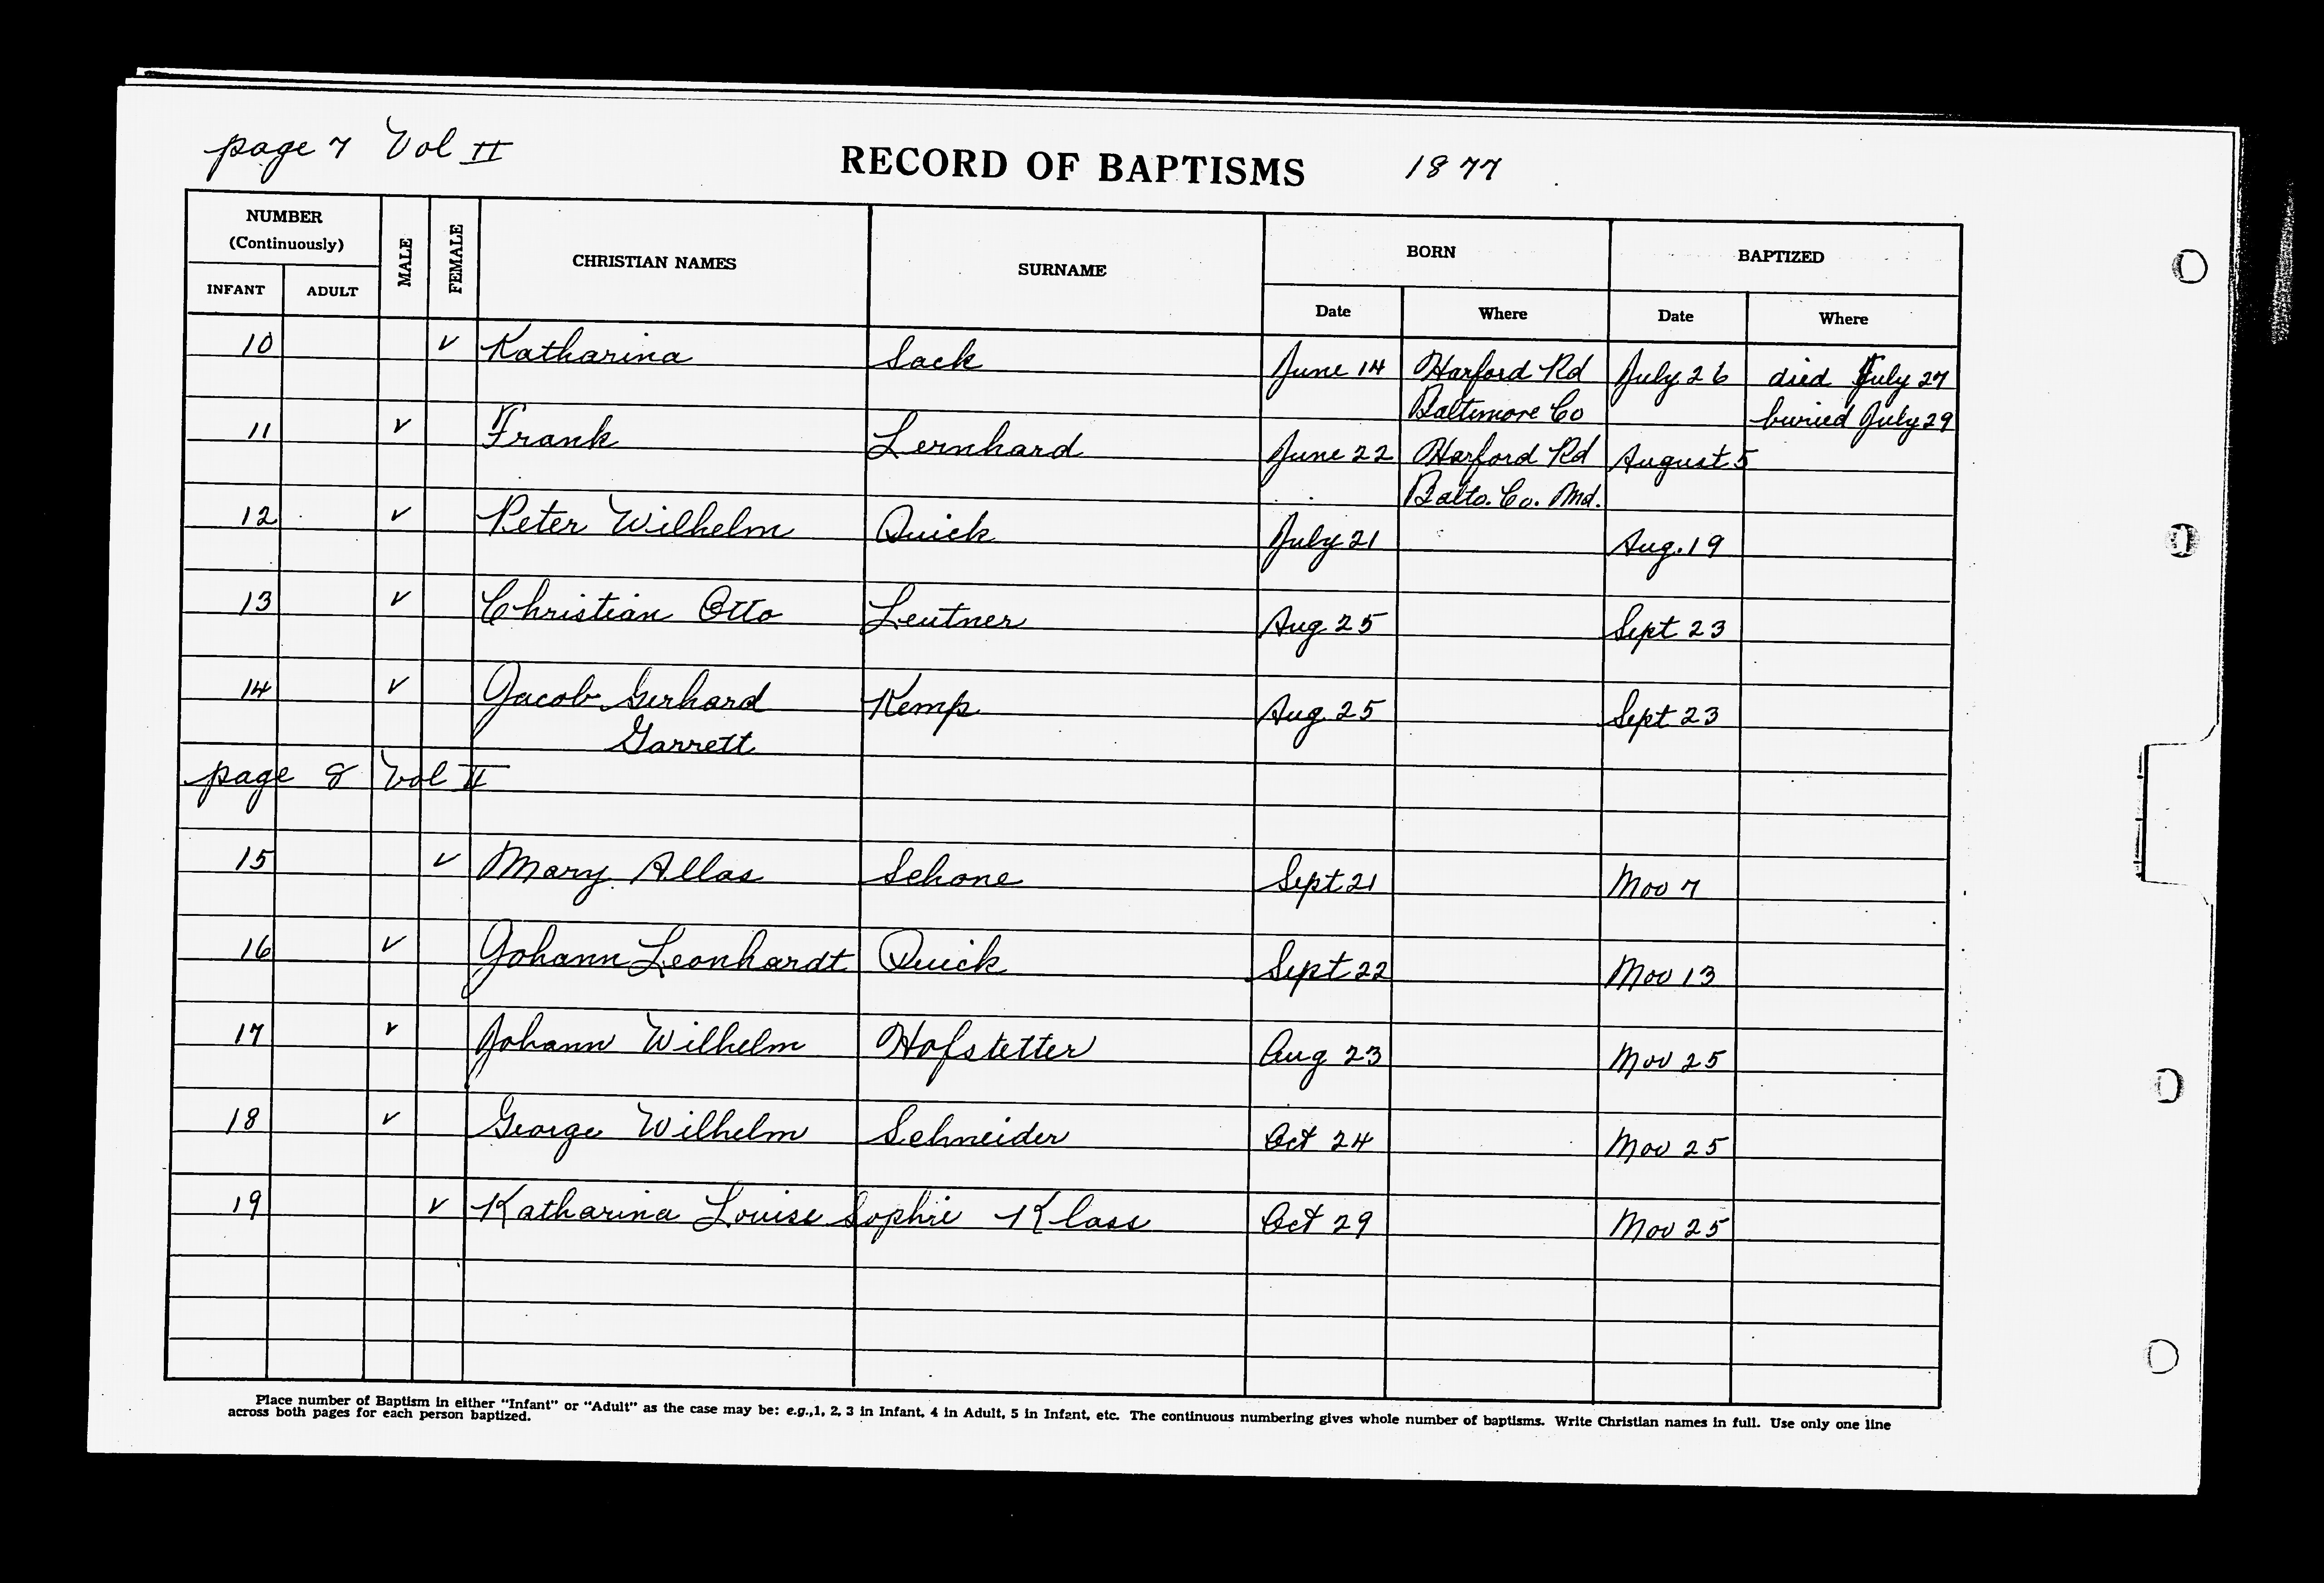 page 7 Vol II
RECORD OF BAPTISMS 1877
NUMBER (Continuously) MALE FEMALE CHRISTIAN NAMES SURNAME BORN BAPTIZED
INFANT ADULT Date Where Date Where
10 v Katharina Sack June 14 Harford Rd July 26 died July 27
Baltimore Co buried July 29
11 v Frank Lernhard June 22 Harford Rd August 5
Balto. Co. Md.
12 v Peter Wilhelm Quick July 21 Aug. 19
13 v Christian Otto Leutner Aug 25 Sept 23
14 v Jacob Gerhard Kemp Aug. 25 Sept 23
Garrett
page 8 Vol II
15 v Mary Allas Schone Sept 21 Nov 7
16 v Johann Leonhardt Quick Sept 22 Nov 13
17 v Johann Wilhelm Hofstetter Aug 23 Nov 25
18 v George Wilhelm Schneider Oct 24 Nov 25
19 v Katharina Louise Sophie Klass Oct 29 Nov 25
Place number of Baptism in either "Infant" or "Adult" as the case may be: e.g.,1, 2, 3 in Infant, 4 in Adult, 5 in Infant, etc. The continuous numbering gives whole number of baptisms. Write Christian names in full. Use only one line
across both pages for each person baptized.